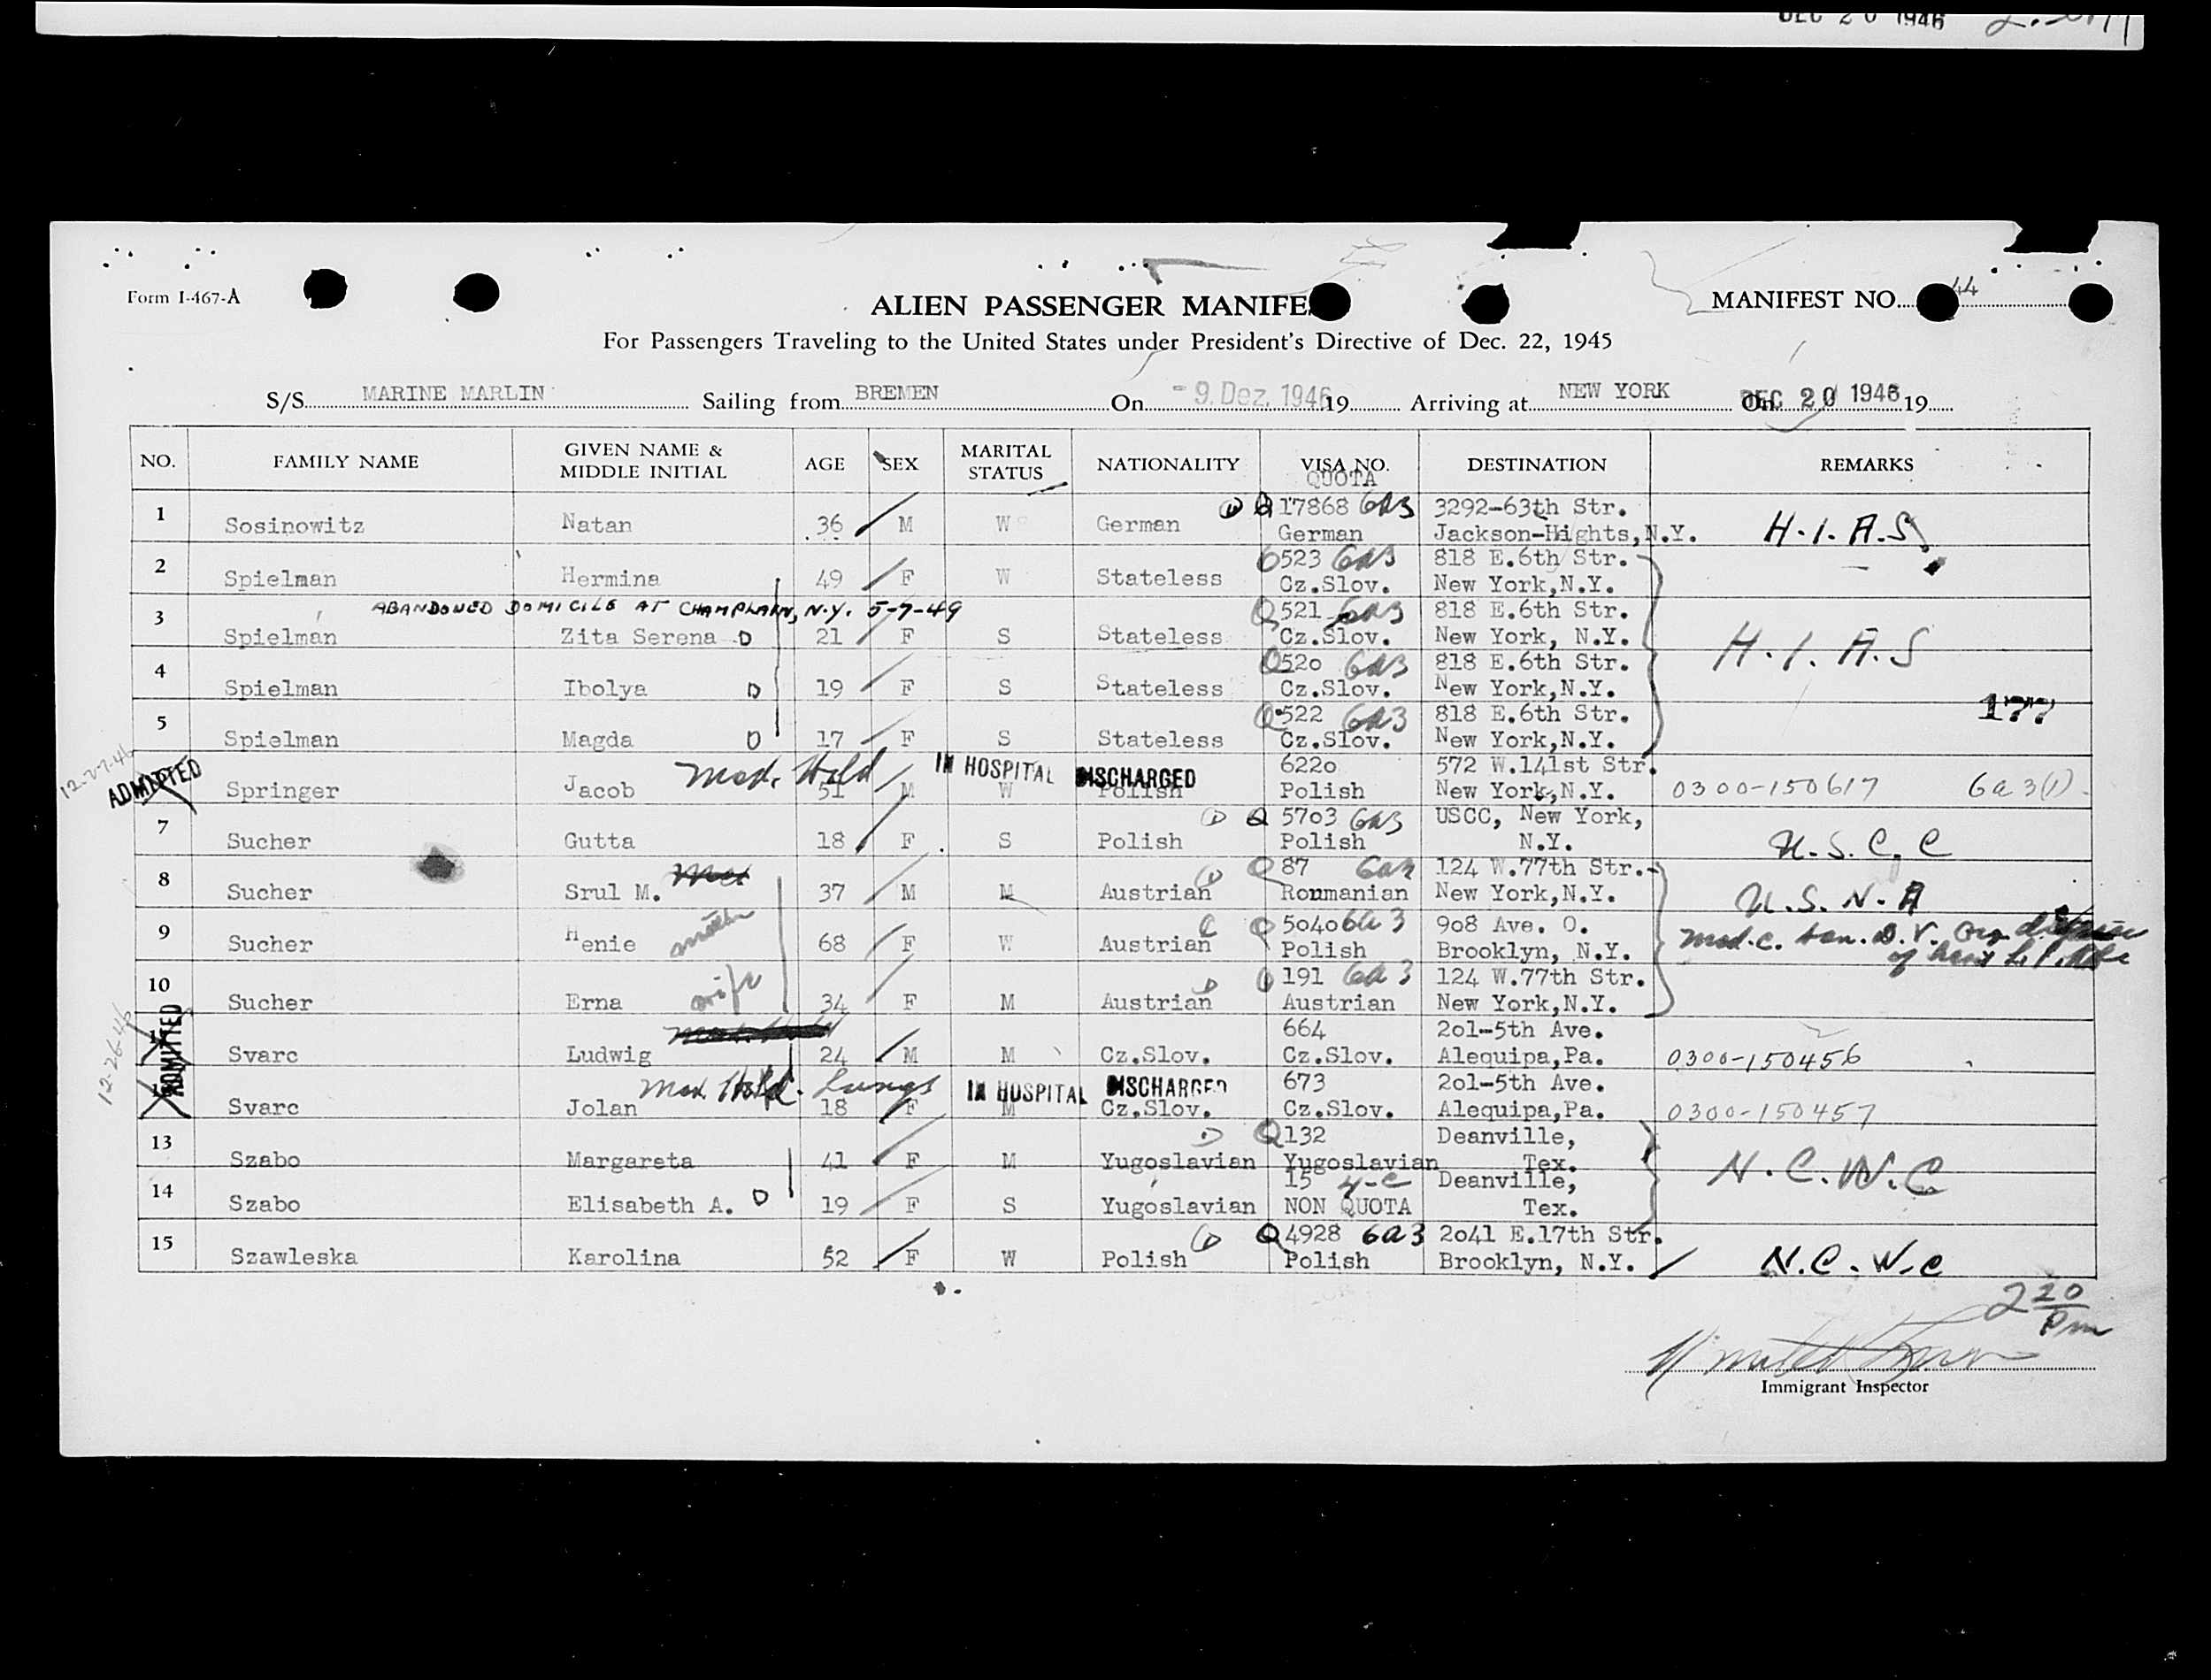 DEC 20 1946
Form I-467-A
ALIEN PASSENGER MANIFE
MANIFEST NO. 44
For Passengers Traveling to the United States under President's Directive of Dec. 22, 1945
S/S MARINE MARLIN Sailing from BREMEN On - 9. Dez. 1946 19 Arriving at NEW YORK On DEC 20 1946 19
NO. FAMILY NAME GIVEN NAME & MIDDLE INITIAL AGE SEX MARITAL STATUS NATIONALITY VISA NO. QUOTA DESTINATION REMARKS
1 Sosinowitz Natan 36 M W German D Q 17868 6a3 German 3292-63th Str. Jackson-Hights, N.Y. H.I.A.S.
2 Spielman Hermina 49 F W Stateless Q 523 6a3 Cz.Slov. 818 E.6th Str. New York,N.Y.
ABANDONED DOMICILE AT CHAMPLAIN, N.Y. 5-7-49
3 Spielman Zita Serena D 21 F S Stateless Q 521 6a3 Cz.Slov. 818 E.6th Str. New York, N.Y. H.I.A.S
4 Spielman Ibolya D 19 F S Stateless Q 520 6a3 Cz.Slov. 818 E.6th Str. New York,N.Y.
177
5 Spielman Magda D 17 F S Stateless Q 522 6a3 Cz.Slov. 818 E.6th Str. New York,N.Y.
12-27-46 ADMITTED
Springer Jacob Med. Hold 51 M W IN HOSPITAL DISCHARGED Polish 6220 Polish 572 W.141st Str. New York,N.Y. 0300-150617 6a3(1)
7 Sucher Gutta 18 F S Polish D Q 5703 6a3 Polish USCC, New York, N.Y. U.S.C.C
8 Sucher Srul M. 37 M M Austrian D Q 87 6a3 Roumanian 124 W.77th Str. New York,N.Y. U.S.N.A
9 Sucher Henie mother 68 F W Austrian Q 5040 6a3 Polish 908 Ave. O. Brooklyn, N.Y. Med. C.
10 Sucher Erna wife 34 F M Austrian D Q 191 6a3 Austrian 124 W.77th Str. New York,N.Y.
12-26-46 ADMITTED
Svarc Ludwig 24 M M Cz.Slov. 664 Cz.Slov. 201-5th Ave. Alequipa,Pa. 0300-150456
Svarc Jolan Med. Hold. Lungs 18 F M IN HOSPITAL DISCHARGED Cz.Slov. 673 Cz.Slov. 201-5th Ave. Alequipa,Pa. 0300-150457
13 Szabo Margareta 41 F M Yugoslavian D Q 132 Yugoslavian Deanville, Tex. N.C.W.C
14 Szabo Elisabeth A. D 19 F S Yugoslavian 15 4-c NON QUOTA Deanville, Tex.
15 Szawleska Karolina 52 F W Polish D Q 4928 6a3 Polish 2041 E.17th Str. Brooklyn, N.Y. N.C.W.C
2 20 Pm
Immigrant Inspector